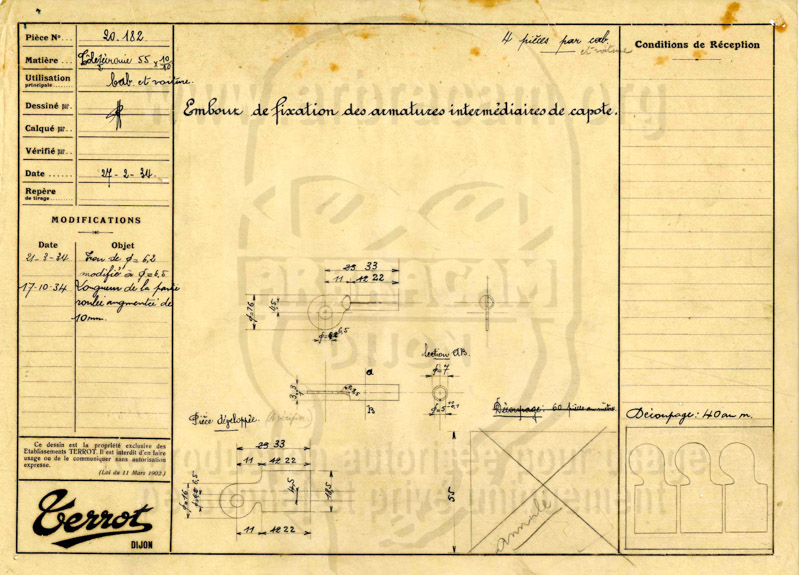 Pièce N°... 20.182
Matière... 55 x 10/10
Utilisation principale... Cab. et voiture.
Dessiné par.
Calqué par..
Vérifié par..
Date ...... 27-2-34.
Repère de tirage.
MODIFICATIONS
Date Objet
21-3-34 Trou de φ=6,2
modifié à φ=6,5
17-10-34 Longueur de la partie
roulée augmentée de
10mm.
Ce dessin est la propriété exclusive des
Etablissements TERROT. Il est interdit d'en faire
usage ou de le communiquer sans autorisation
expresse.
(Loi du 11 Mars 1902.)
Terrot
DIJON
4 pièces par cab.
et voiture
Embout de fixation des armatures intermédiaires de capote.
23 33
11 12 22
φ=16
4,5
φ=6,2 6,5
Section AB.
a
B
3,5
φ=7
φ=5
Pièce développée. (à vérifier)
23 33
11 12 22
φ=16
6,5
4,5
18,5
11 12 22
Découpage: 60 pièces au mètre
55
annulé
Conditions de Réception
Découpage: 40 au m.
www.arbracam.org
ARBRACAM
DIJON
Reproduction autorisée pour usage
personnel et privé uniquement